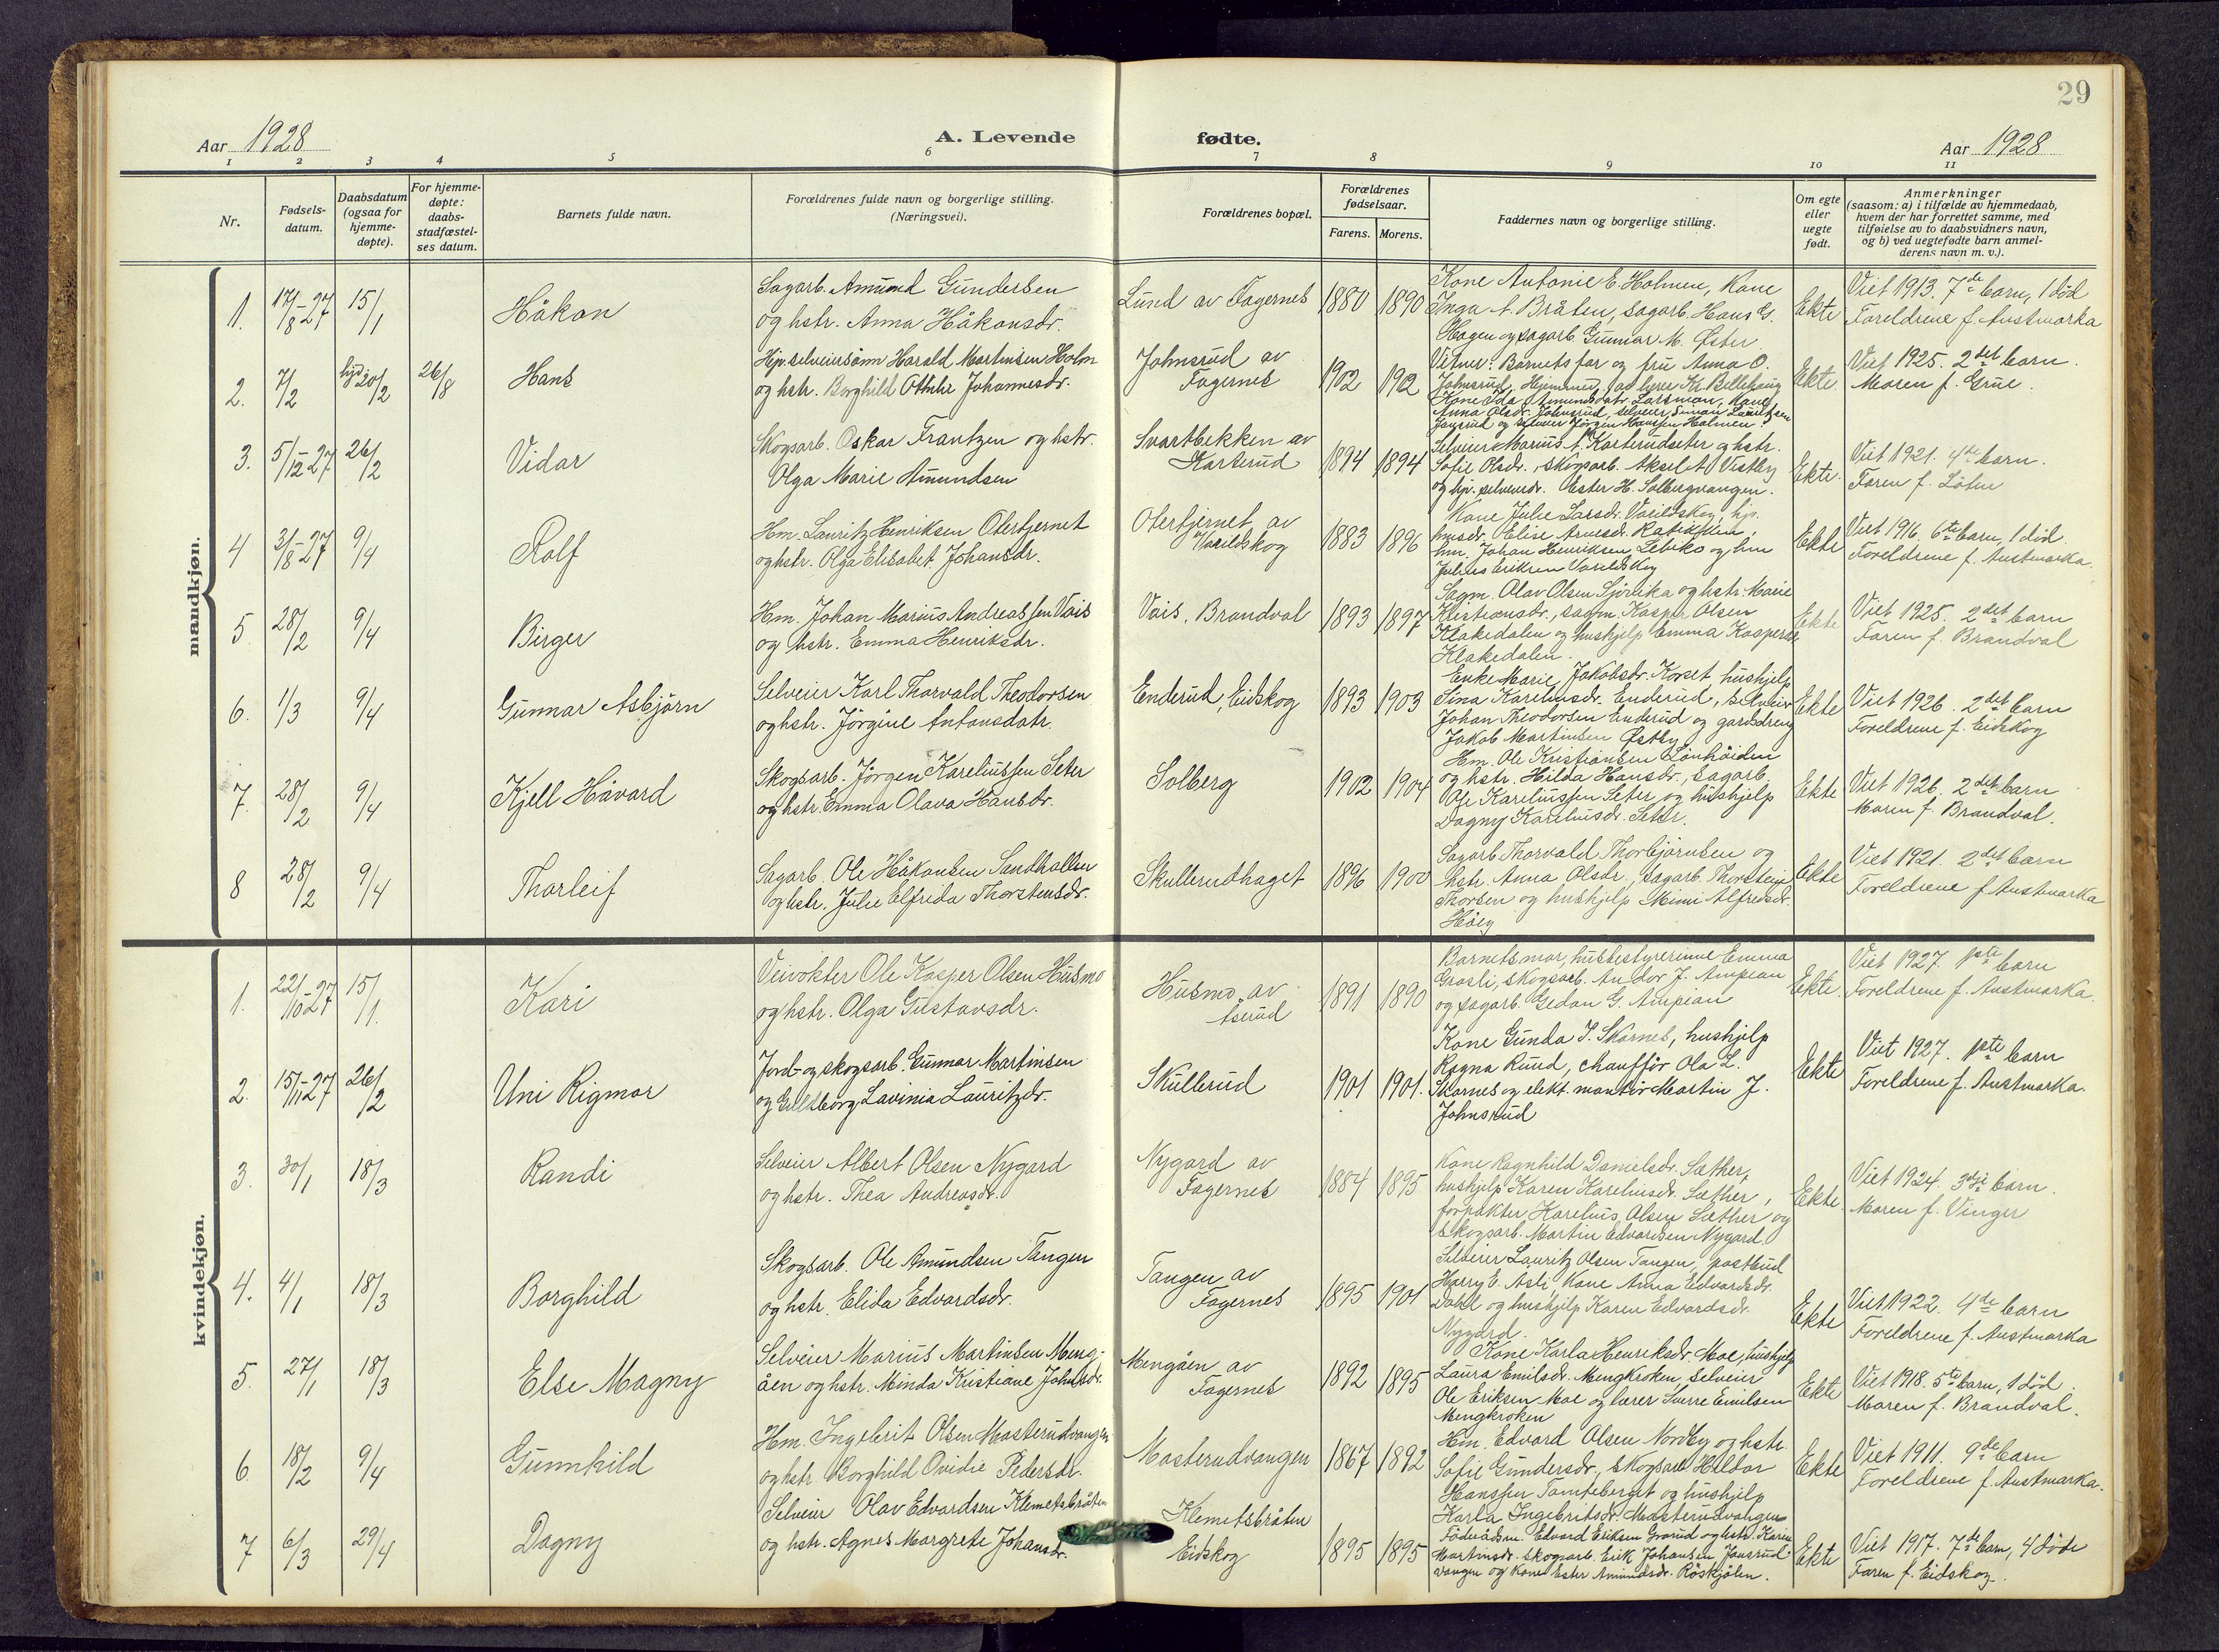 29
Aar 1928
A. Levende fødte.
Aar 1928
1 2 3 4 5 6 7 8 9 10 11
Nr.
Fødsels-
datum.
Daabsdatum
(ogsaa for
hjemme-
døpte).
For hjemme-
døpte:
daabs-
stadfæstel-
ses datum.
Barnets fulde navn.
Forældrenes fulde navn og borgerlige stilling.
(Næringsvei).
Forældrenes bopæl.
Forældrenes
fødselsaar.
Farens. Morens.
Faddernes navn og borgerlige stilling.
Om egte
eller
uegte
født.
Anmerkninger
(saasom: a) i tilfælde av hjemmedaab,
hvem der har forrettet samme, med
tilføielse av to daabsvidners navn,
og b) ved uegtefødte barn anmel-
derens navn m. v.).
mandkjøn.
1. 17/8-27 15/1 Håkon
Sagarb. Amund Gundersen
og hstr. Anna Håkonsdr.
Lund av Fagernes 1880 1890
Kone Antonie E. Holmen, Kone
Inga A. Bråten, sagarb. Hans G.
Hagen og sagarb. Gunnar M. Øster
Ekte
Viet 1913. 7de barn, 1 död
Foreldrene f. Austmarka
2. 7/2 hjd 20/2 26/8 Hans
Hjv. selveiersönn Harald Martinsen Holm
og hstr. Borghild Othilie Johannesdr.
Johnsrud av
Fagernes
1902 1902
Vitner: Barnets far og fru Anna O.
Johnsrud. Hjemmed. av lærer Kr. Bellehaug
Kone Ida Amundsdatr. Larsmon, Kone
Anna Olsdr. Johnsrud, selveier Simon Lauritsen
Jonsrud og selveier Jörgen Hansen Holmen.
Ekte.
Viet 1925. 2det barn.
Moren f. Grue.
3. 5/12-27 26/2 Vidar
Skogsarb. Oskar Frantzen og hstr.
Olga Marie Amundsen
Svartbekken av
Karterud
1894 1894
Selveier Marius A. Karterudseter og hstr.
Sofie Olsdr., skogsarb. Aksel A. Vestby
og hjv. selveierdr. Ester H. Solbergvangen.
Ekte.
Viet 1921. 4de barn.
Faren f. Löten
4 3/8-27 9/4 Rolf
Hm. Lauritz Henriksen Otertjernet
og hstr. Olga Elisabet Johansdr.
Otertjernet av
Varildskog
1883 1896
Kone Julie Larsdr. Varildskog, hjv.
husdr. Elise Arnesdr.
hm. Johan Henriksen Lebiko og hm
Julius Eriksen Varildskog
Ekte
Viet 1916. 6te barn, 1 död.
Foreldrene f. Austmarka.
5. 28/2 9/4 Birger
Hm. Johan Marius Andreassen Vais
og hstr. Emma Henriksdr.
Vais, Brandval 1893 1897
Sagm. Olav Olsen Sjölika og hstr. Marie
Kristiansdr., sagm. Kasper Olsen
Klakedalen og hushjelp Emma Kaspersdr.
Klakedalen.
Ekte
Viet 1925. 2det barn
Faren f. Brandval
6. 1/3 9/4 Gunnar Asbjörn
Selveier Karl Thorvald Theodorsen
og hstr. Jörgine Antonsdatr.
Enderud, Eidskog 1893 1903
Enke Marie Jakobsdr. Korset hushjelp
Sina Kareliusdr. Enderud, selveier
Johan Theodorsen Enderud og gardsdreng
Jakob Martinsen Østby
Ekte
Viet 1926. 2det barn
Foreldrene f. Eidskog
7. 28/2 9/4 Kjell Håvard
Skogsarb. Jörgen Kareliussen Seter
og hstr. Emma Olava Hansdr.
Solberg 1902 1904
Hm. Ole Kristiansen Lönhöiden
og hstr. Hilda Hansdr., Sagarb.
Ole Kareliussen Seter og hushjelp
Dagny Kareliusdr. Seter.
Ekte
Viet 1926. 2det barn
Moren f. Brandval.
8 28/2 9/4 Thorleif
Sagarb. Ole Håkonsen Sandbakken
og hstr. Julie Elfrida Thorstensdr.
Skullerudhaget 1896 1900
Sagarb. Thorvald Thorbjörnsen og
hstr. Anna Olsdr., sagarb. Thorstein
Thorsen og hushjelp Mimi Alfredsdr.
Höieg
Ekte
Viet 1921. 2det barn
Foreldrene f. Austmarka
kvindekjøn.
1. 22/10-27 15/1. Kari
Veivokter Ole Kasper Olsen Husmo
og hstr. Olga Gustavsdr.
Husmo av
Aserud
1891 1890
Barnets mor, husbestyrerinne Emma
Grasli, skogsarb. Andor J. Ampian
og sagarb. Gedon G. Ampian
Ekte.
Viet 1927. 1ste barn
Foreldrene f. Austmarka.
2. 15/11-27 26/2 Uni Rigmor
Jord- og skogsarb. Gunnar Martinsen
og Gullborg Lavinia Lauritzdr.
Skullerud 1901 1901.
Kone Gunda J. Skarnes, hushjelp
Ragna Ruud, chafför Ola L.
Skarnes og elekt. montör Martin J.
Johnsrud
Ekte
Viet 1927. 1ste barn
Foreldrene f. Austmarka.
3. 30/1 18/3 Randi
Selveier Albert Olsen Nygard
og hstr. Thea Andreasdr.
Nygard av
Fagernes
1884 1895
Kone Ragnhild Danielsdr. Sæther,
hushjelp Karen Kareliusdr. Sæther,
forpakter Karelius Olsen Sæther og
skogsarb. Martin Edvardsen Nygard.
Ekte.
Viet 1924. 3dje barn.
Moren f. Vinger
4. 4/1 18/3 Borghild
Skogsarb. Ole Amundsen Tangen
og hstr. Elida Edvardsdr.
Tangen av
Fagernes
1895 1901
Selveier Lauritz Olsen Tangen, postbud
Harry E. Asli, Kone Anna Edvardsdr.
Dahl og hushjelp Karen Edvardsdr.
Nygard.
Ekte
Viet 1922. 4de barn
Foreldrene f. Austmarka
5. 27/1 18/3 Else Magny
Selveier Marius Martinsen Meng-
åen og hstr. Minda Kristiane Johnsdr.
Mengåen av
Fagernes
1892 1895
Kone Karla Henriksdr. Moe, hushjelp
Laura Emilsdr. Mengkroken, selveier
Ole Eriksen Moe og lærer Sverre Emilsen
Mengkroken
Ekte
Viet 1918. 5te barn, 1 död.
Moren f. Brandval.
6. 18/2 9/4 Gunnhild
Hm. Ingebrit Olsen Masterudvangen
og hstr. Borghild Ovidie Pedersdr.
Masterudvangen 1867 1892
Hm. Edvard Olsen Nordby og hstr.
Sofie Gundersdr., skogsarb. Haldor
Hanssen Tomteberget og hushjelp
Karla Ingebritsdr. Masterudvangen
Ekte
Viet 1911. 9de barn
Foreldrene f. Austmarka.
7 6/3 29/4 Dagny
Selveier Olav Edvardsen Klemetsbråten
og hstr. Agnes Margrete Johansdr.
Klemetsbråten
Eidskog
1895 1895
Föderådsm. Edvard Eriksen Grarud og hstr. Karin
Martinsdr. Skogsarb. Erik Johansen Jonsrud-
vangen og Kone Ester Amundsdr. Röskjölen.
Ekte
Viet 1917. 7de barn, 4 döde
Faren f. Eidskog.